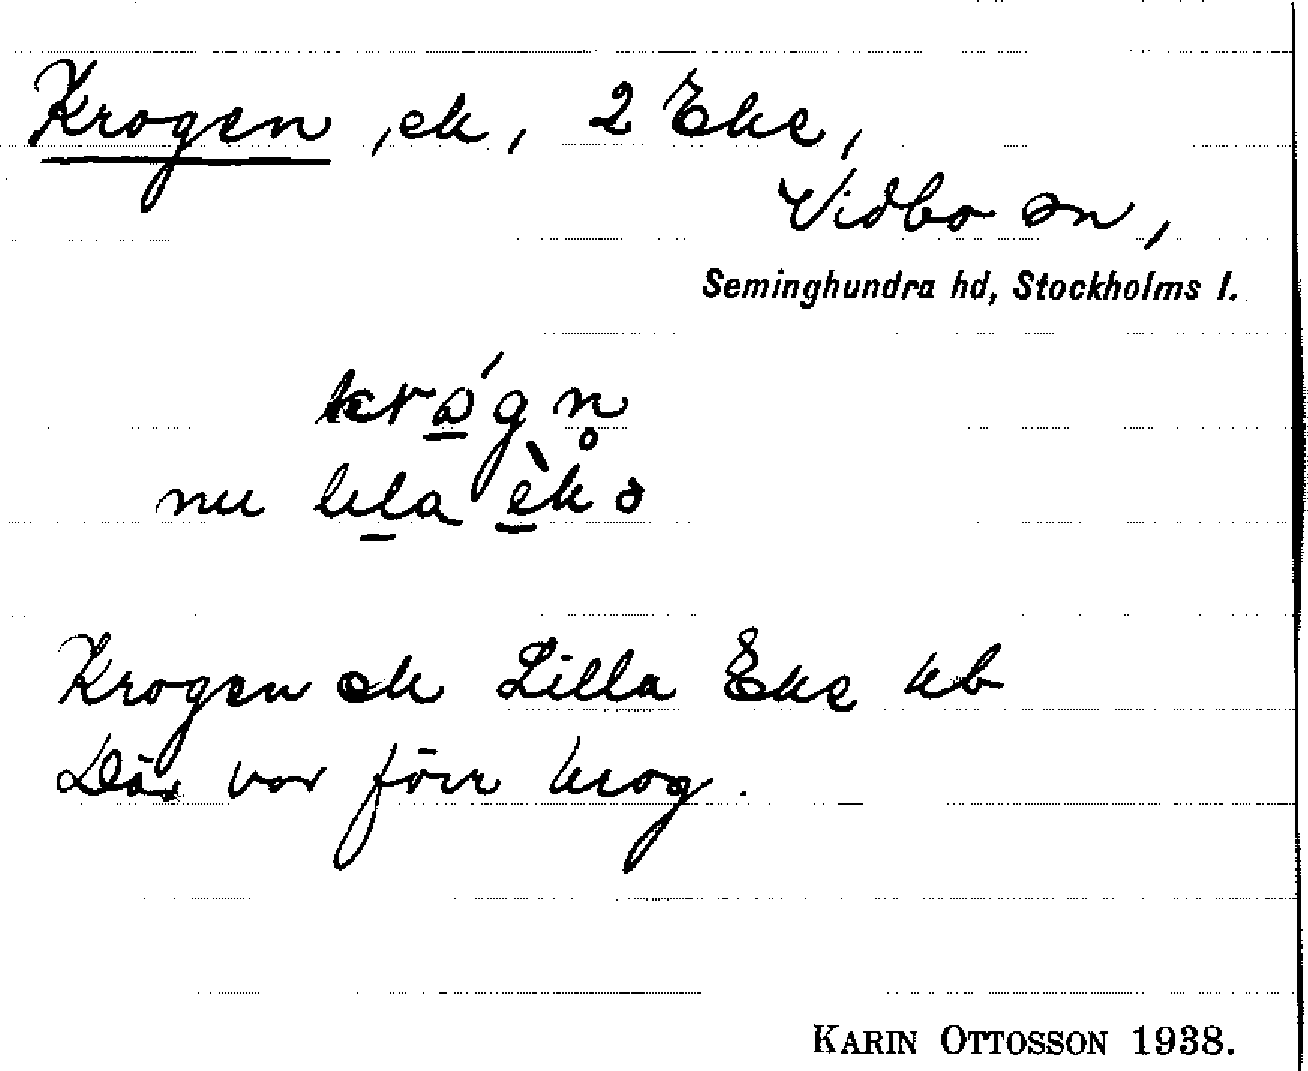 Krogen, ek, 2 Eke,
Vidbo sn,
Seminghundra hd, Stockholms l.
krǫ́gn̥
nu lila èkə
Krogen ek Lilla Eke kb
Där var förr krog.
KARIN OTTOSSON 1938.